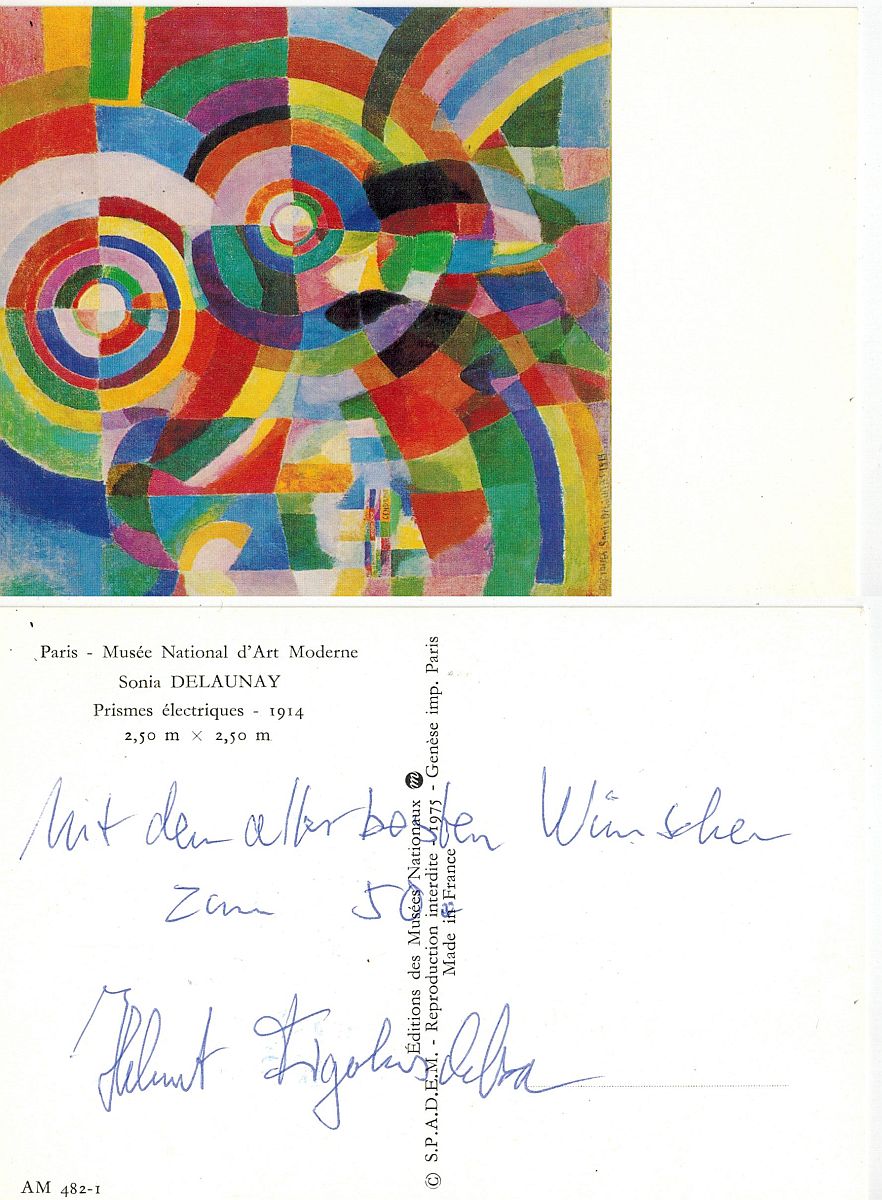 Paris - Musée National d'Art Moderne
Sonia DELAUNAY
Prismes électriques - 1914
2,50 m × 2,50 m
Mit den allerbesten Wünschen
zum 50.
Helmut
© S.P.A.D.E.M. - Reproduction interdite - 1975 - Genèse imp. Paris
Éditions des Musées Nationaux m
Made in France
AM 482-1